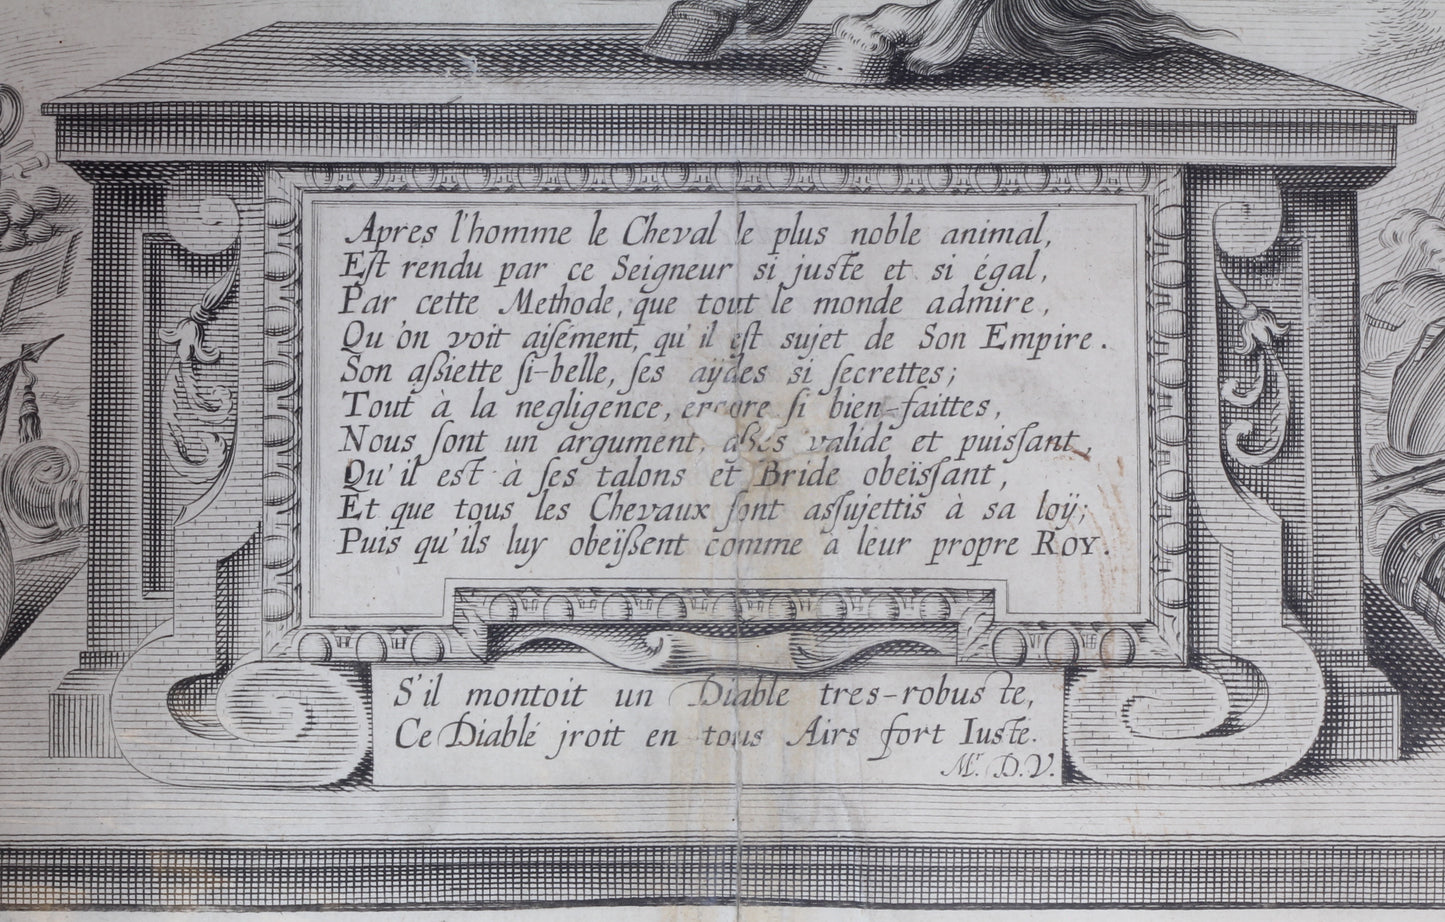 Apres l'homme le Cheval le plus noble animal,
Est rendu par ce Seigneur si juste et si égal,
Par cette Methode, que tout le monde admire,
Qu'on voit aisément, qu'il est sujet de Son Empire.
Son aſsiette ſi-belle, ſes aÿdes si ſecrettes;
Tout à la negligence, encore ſi bien-faittes,
Nous ſont un argument, aſsés valide et puiſsant,
Qu'il est à ſes talons et Bride obeïsſant,
Et que tous les Chevaux ſont asſujettis à sa loÿ;
Puis qu'ils luy obeïſsent comme a leur propre ROY.
S'il montoit un Diable tres-robuste,
Ce Diablé jroit en tous Airs fort Iuste.
Mr. D.V.